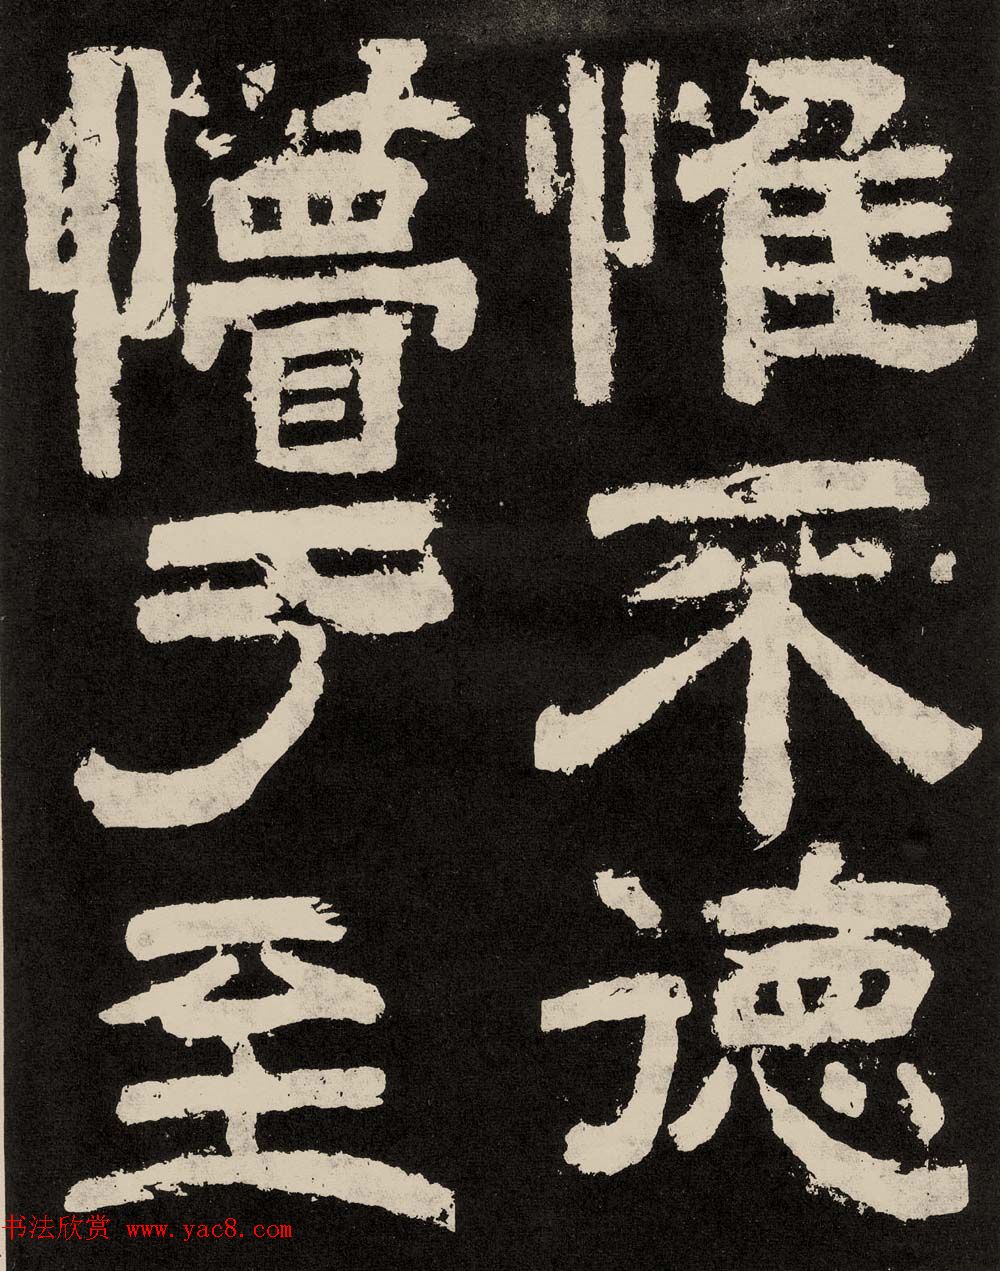 惟不德
懵于至
书法欣赏 www.yac8.com